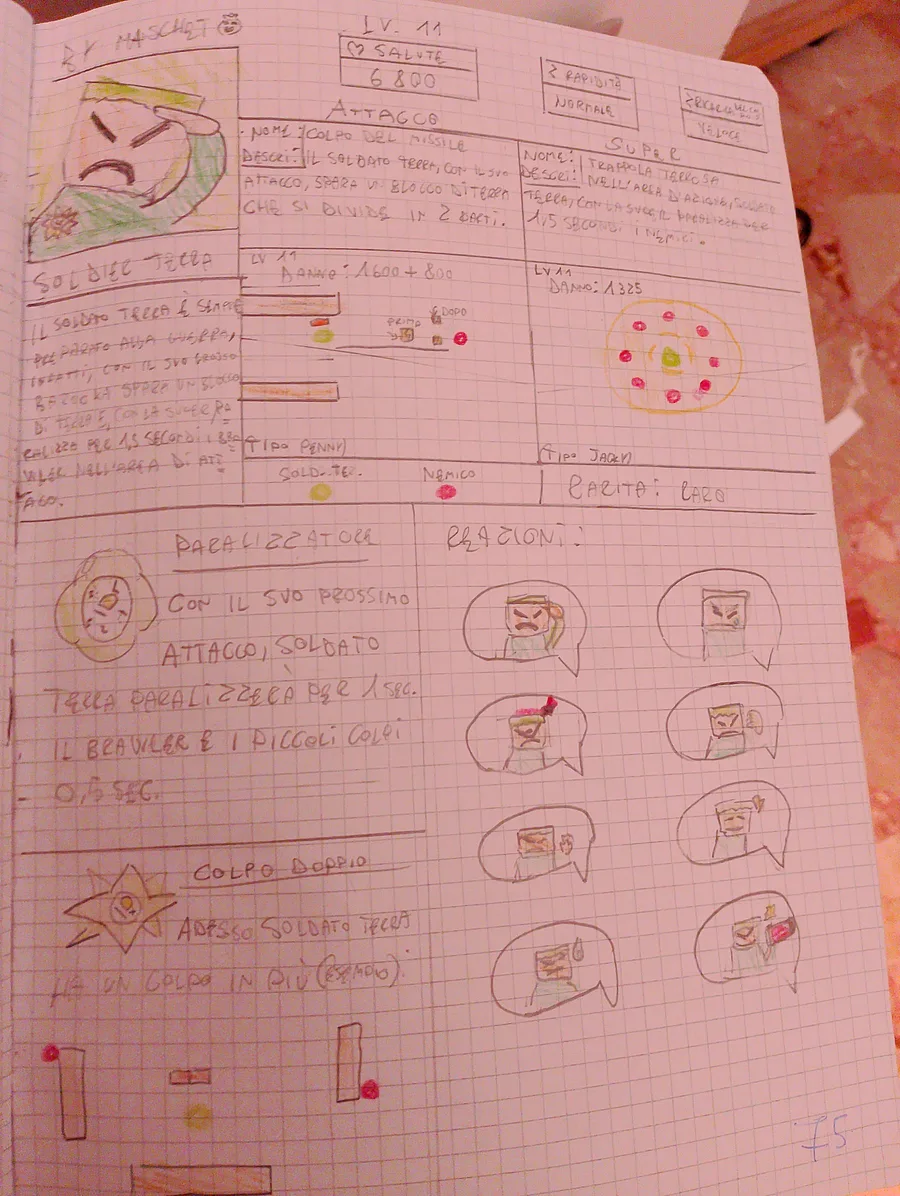 BY MASCHETO
LV. 11
SALUTE
6800
RAPIDITÀ
NORMALE
VELOCE
ATTACCO
NOME: COLPO DEL MISSILE
DESCRI: IL SOLDATO TERRA, CON IL SUO
ATTACCO, SPARA UN BLOCCO DI TERRA
CHE SI DIVIDE IN 2 PARTI.
SUPER
NOME: TRAPPOLA TERROSA
DESCRI: NELL'AREA D'AZIONE, SOLDATO
TERRA, CON LA SUPER PARALIZZA PER
1,5 SECONDI I NEMICI.
SOLDIER TERRA
IL SOLDATO TERRA È SEMPRE
PREPARATO ALLA GUERRA,
INFATTI, CON IL SUO GROSSO
BAZOOKA SPARA UN BLOCCO
DI TERRA E, CON LA SUPER, PA
RALIZZA PER 1,5 SECONDI I BRA
WLER NELL'AREA DI ATT
ACO.
LV 11
DANNO: 1600 + 800
PRIMA
DOPO
TIPO PENNY
LV 11
DANNO: 1325
TIPO JACKY
SOLD. TER.
NEMICO
RARITÀ: RARO
PARALIZZATORE
CON IL SUO PROSSIMO
ATTACCO, SOLDATO
TERRA PARALIZZERÀ PER 1 SEC.
IL BRAWLER E I PICCOLI COLPI
0,5 SEC.
REAZIONI:
COLPO DOPPIO
ADESSO SOLDATO TERRA
HA UN COLPO IN PIÙ (ESEMPIO):
75